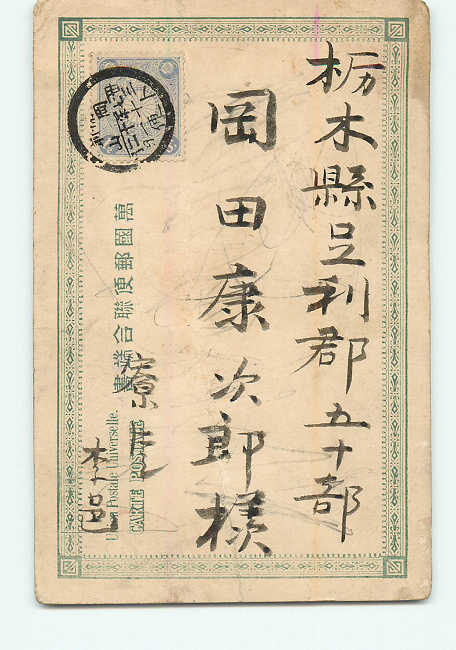 栃木縣足利郡五十部
岡田康次郎様
萬國郵便聯合端書
Union Postale Universelle.
CARTE POSTALE